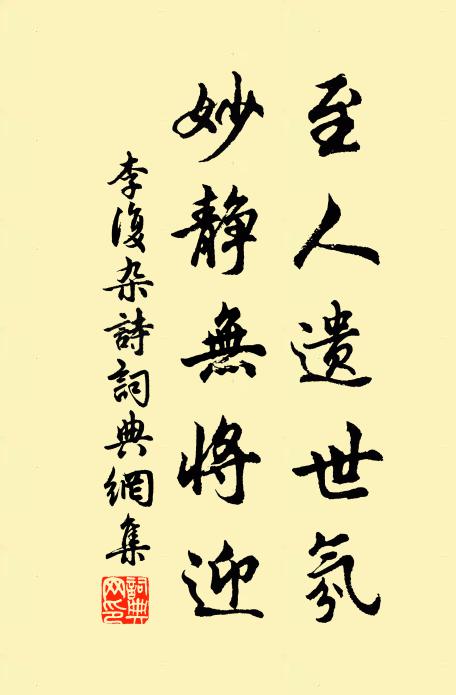 至人遗世氛
妙静無将迎
李復杂詩詞典網集
詞典网印